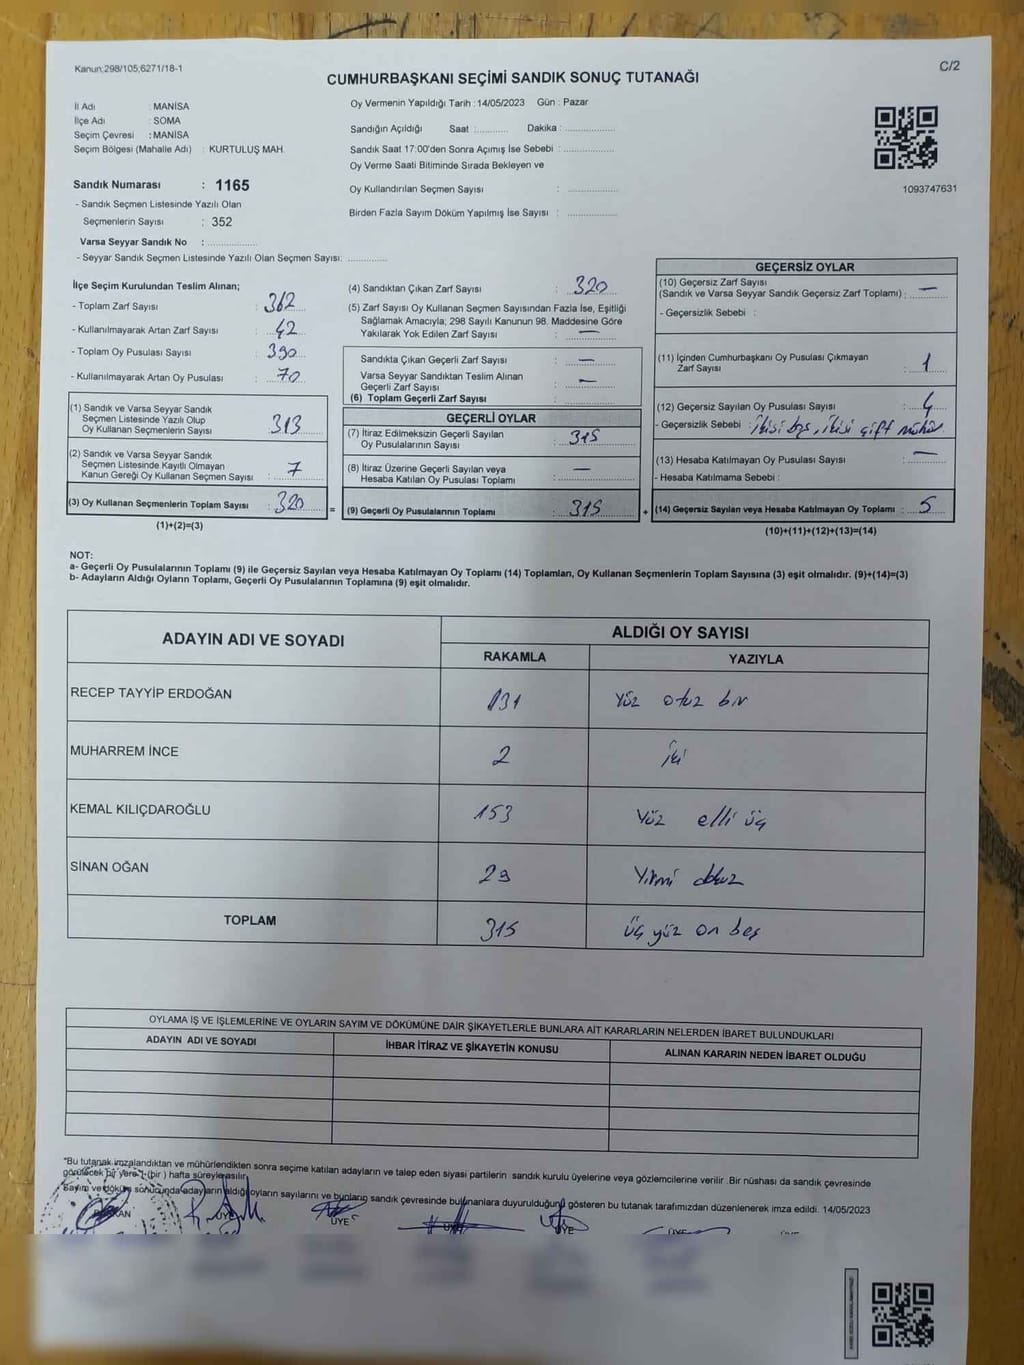 Kanun:298/105,6271/18-1
C/2
CUMHURBAŞKANI SEÇİMİ SANDIK SONUÇ TUTANAĞI
İl Adı : MANİSA
İlçe Adı : SOMA
Seçim Çevresi : MANİSA
Seçim Bölgesi (Mahalle Adı) : KURTULUŞ MAH.
Sandık Numarası : 1165
- Sandık Seçmen Listesinde Yazılı Olan
Seçmenlerin Sayısı : 352
Varsa Seyyar Sandık No : ................
- Seyyar Sandık Seçmen Listesinde Yazılı Olan Seçmen Sayısı: ............
Oy Vermenin Yapıldığı Tarih : 14/05/2023 Gün : Pazar
Sandığın Açıldığı Saat ............ Dakika : ................
Sandık Saat 17:00'den Sonra Açımış İse Sebebi : ................
Oy Verme Saati Bitiminde Sırada Bekleyen ve
Oy Kullandırılan Seçmen Sayısı : ................
Birden Fazla Sayım Döküm Yapılmış İse Sayısı : ................
1093747631
İlçe Seçim Kurulundan Teslim Alınan;
- Toplam Zarf Sayısı : 362
- Kullanılmayarak Artan Zarf Sayısı : 42
- Toplam Oy Pusulası Sayısı : 390
- Kullanılmayarak Artan Oy Pusulası : 70
(1) Sandık ve Varsa Seyyar Sandık
Seçmen Listesinde Yazılı Olup
Oy Kullanan Seçmenlerin Sayısı : 313
(2) Sandık ve Varsa Seyyar Sandık
Seçmen Listesinde Kayıtlı Olmayan
Kanun Gereği Oy Kullanan Seçmen Sayısı : 7
(3) Oy Kullanan Seçmenlerin Toplam Sayısı : 320
(1)+(2)=(3)
(4) Sandıktan Çıkan Zarf Sayısı : 320
(5) Zarf Sayısı Oy Kullanan Seçmen Sayısından Fazla İse, Eşitliği
Sağlamak Amacıyla; 298 Sayılı Kanunun 98. Maddesine Göre
Yakılarak Yok Edilen Zarf Sayısı : —
Sandıkta Çıkan Geçerli Zarf Sayısı : —
Varsa Seyyar Sandıktan Teslim Alınan
Geçerli Zarf Sayısı : —
(6) Toplam Geçerli Zarf Sayısı : ................
=
GEÇERLİ OYLAR
(7) İtiraz Edilmeksizin Geçerli Sayılan
Oy Pusulalarının Sayısı : 315
(8) İtiraz Üzerine Geçerli Sayılan veya
Hesaba Katılan Oy Pusulası Toplamı : —
(9) Geçerli Oy Pusulalarının Toplamı : 315
+
GEÇERSİZ OYLAR
(10) Geçersiz Zarf Sayısı
(Sandık ve Varsa Seyyar Sandık Geçersiz Zarf Toplamı) : —
- Geçersizlik Sebebi :
(11) İçinden Cumhurbaşkanı Oy Pusulası Çıkmayan
Zarf Sayısı : 1
(12) Geçersiz Sayılan Oy Pusulası Sayısı : 4
- Geçersizlik Sebebi : İkisi boş, ikisi çift mühür
(13) Hesaba Katılmayan Oy Pusulası Sayısı : —
- Hesaba Katılmama Sebebi :
(14) Geçersiz Sayılan veya Hesaba Katılmayan Oy Toplamı : 5
(10)+(11)+(12)+(13)=(14)
NOT:
a- Geçerli Oy Pusulalarının Toplamı (9) ile Geçersiz Sayılan veya Hesaba Katılmayan Oy Toplamı (14) Toplamları, Oy Kullanan Seçmenlerin Toplam Sayısına (3) eşit olmalıdır. (9)+(14)=(3)
b- Adayların Aldığı Oyların Toplamı, Geçerli Oy Pusulalarının Toplamına (9) eşit olmalıdır.
ADAYIN ADI VE SOYADI
ALDIĞI OY SAYISI
RAKAMLA YAZIYLA
RECEP TAYYİP ERDOĞAN 131 Yüz otuz bir
MUHARREM İNCE 2 İki
KEMAL KILIÇDAROĞLU 153 Yüz elli üç
SİNAN OĞAN 29 Yirmi dokuz
TOPLAM 315 üç yüz on beş
OYLAMA İŞ VE İŞLEMLERİNE VE OYLARIN SAYIM VE DÖKÜMÜNE DAİR ŞİKAYETLERLE BUNLARA AİT KARARLARIN NELERDEN İBARET BULUNDUKLARI
ADAYIN ADI VE SOYADI İHBAR İTİRAZ VE ŞİKAYETİN KONUSU ALINAN KARARIN NEDEN İBARET OLDUĞU
"Bu tutanak imzalandıktan ve mühürlendikten sonra seçime katılan adayların ve talep eden siyasi partilerin sandık kurulu üyelerine veya gözlemcilerine verilir. Bir nüshası da sandık çevresinde
görülecek bir yere 1 (bir ) hafta süreyle asılır.
Sayım ve döküm sonucunda adayların aldığı oyların sayılarını ve bunların sandık çevresinde bulunanlara duyurulduğunu gösteren bu tutanak tarafımızdan düzenlenerek imza edildi. 14/05/2023
BAŞKAN ÜYE ÜYE ÜYE ÜYE ÜYE ÜYE